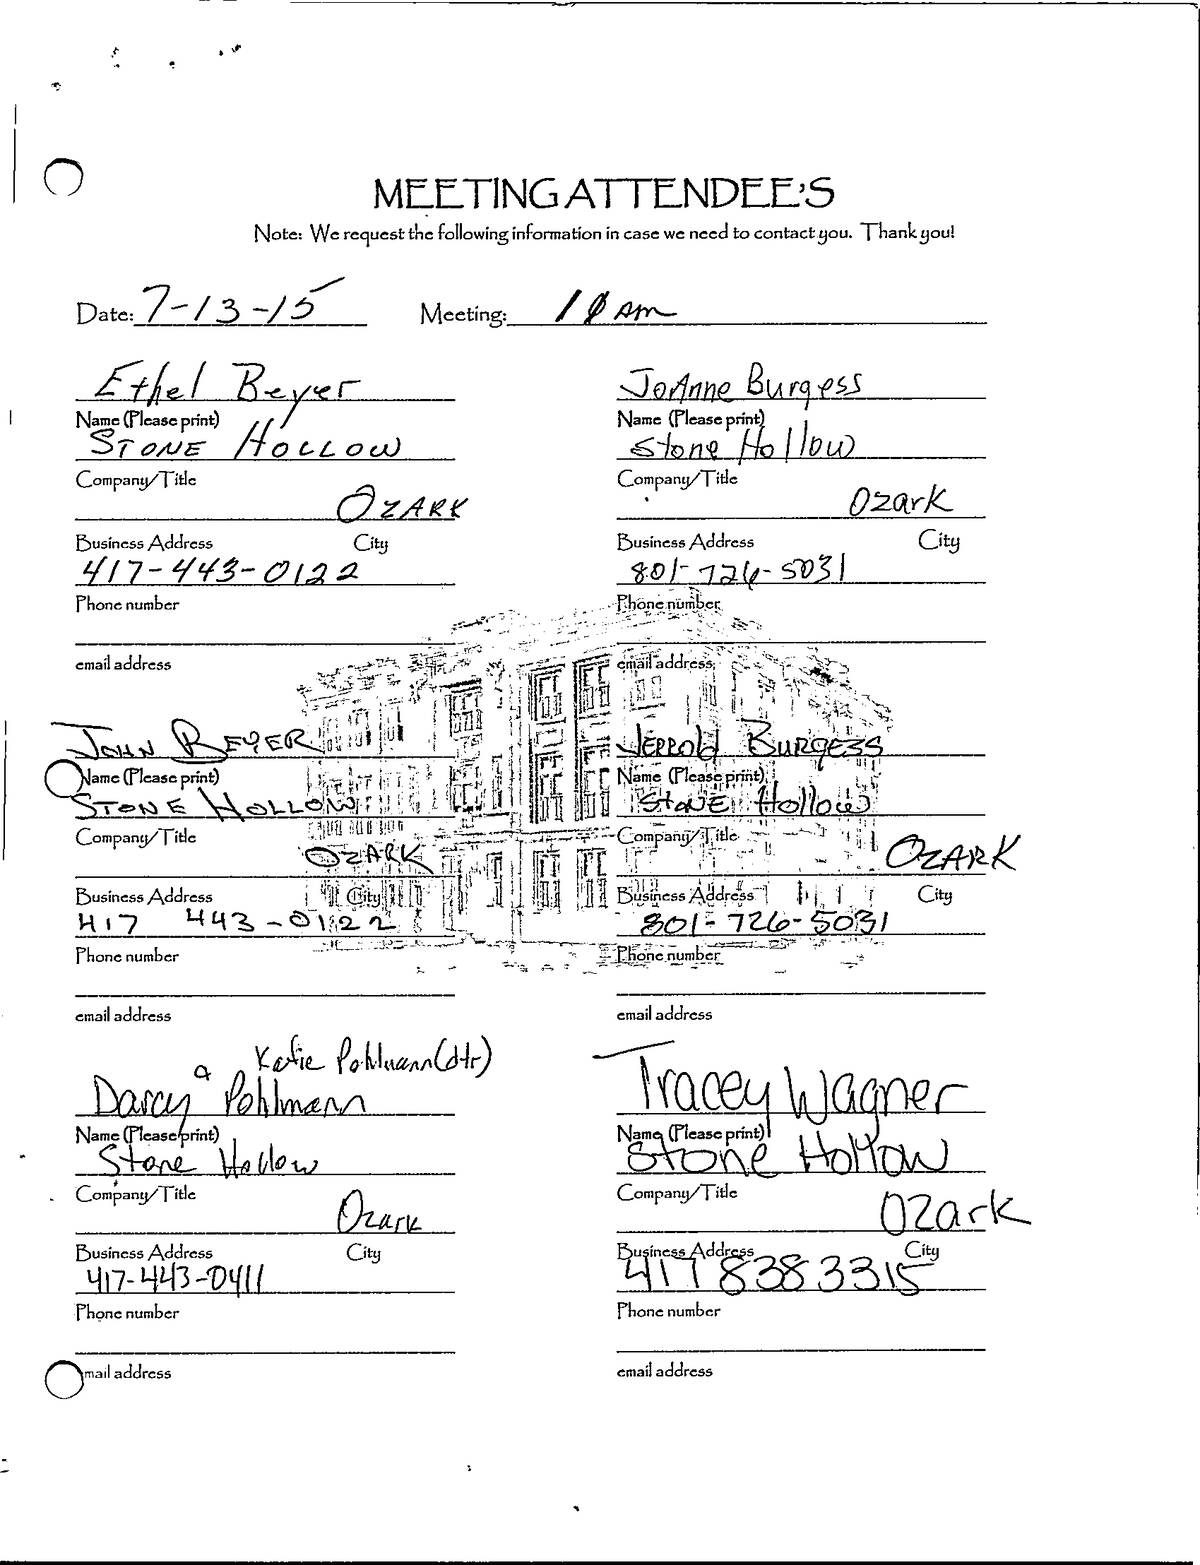 MEETING ATTENDEE'S
Note: We request the following information in case we need to contact you. Thank you!
Date: 7-13-15 Meeting: 10 am
Ethel Beyer
Name (Please print)
STONE HOLLOW
Company/Title
OZARK
Business Address City
417-443-0122
Phone number
email address
JoAnne Burgess
Name (Please print)
Stone Hollow
Company/Title
Ozark
Business Address City
801-726-5031
Phone number
email address
JOHN BEYER
Name (Please print)
STONE HOLLOW
Company/Title
OZARK
Business Address City
417 443-0122
Phone number
email address
Jerrold Burgess
Name (Please print)
Stone Hollow
Company/Title
OZARK
Business Address City
801-726-5031
Phone number
email address
& Katie Pohlmann (dtr)
Darcy Pohlmann
Name (Please print)
Stone Hollow
Company/Title
Ozark
Business Address City
417-443-0411
Phone number
mail address
Tracey Wagner
Name (Please print)
Stone Hollow
Company/Title
Ozark
Business Address City
417 838 3315
Phone number
email address